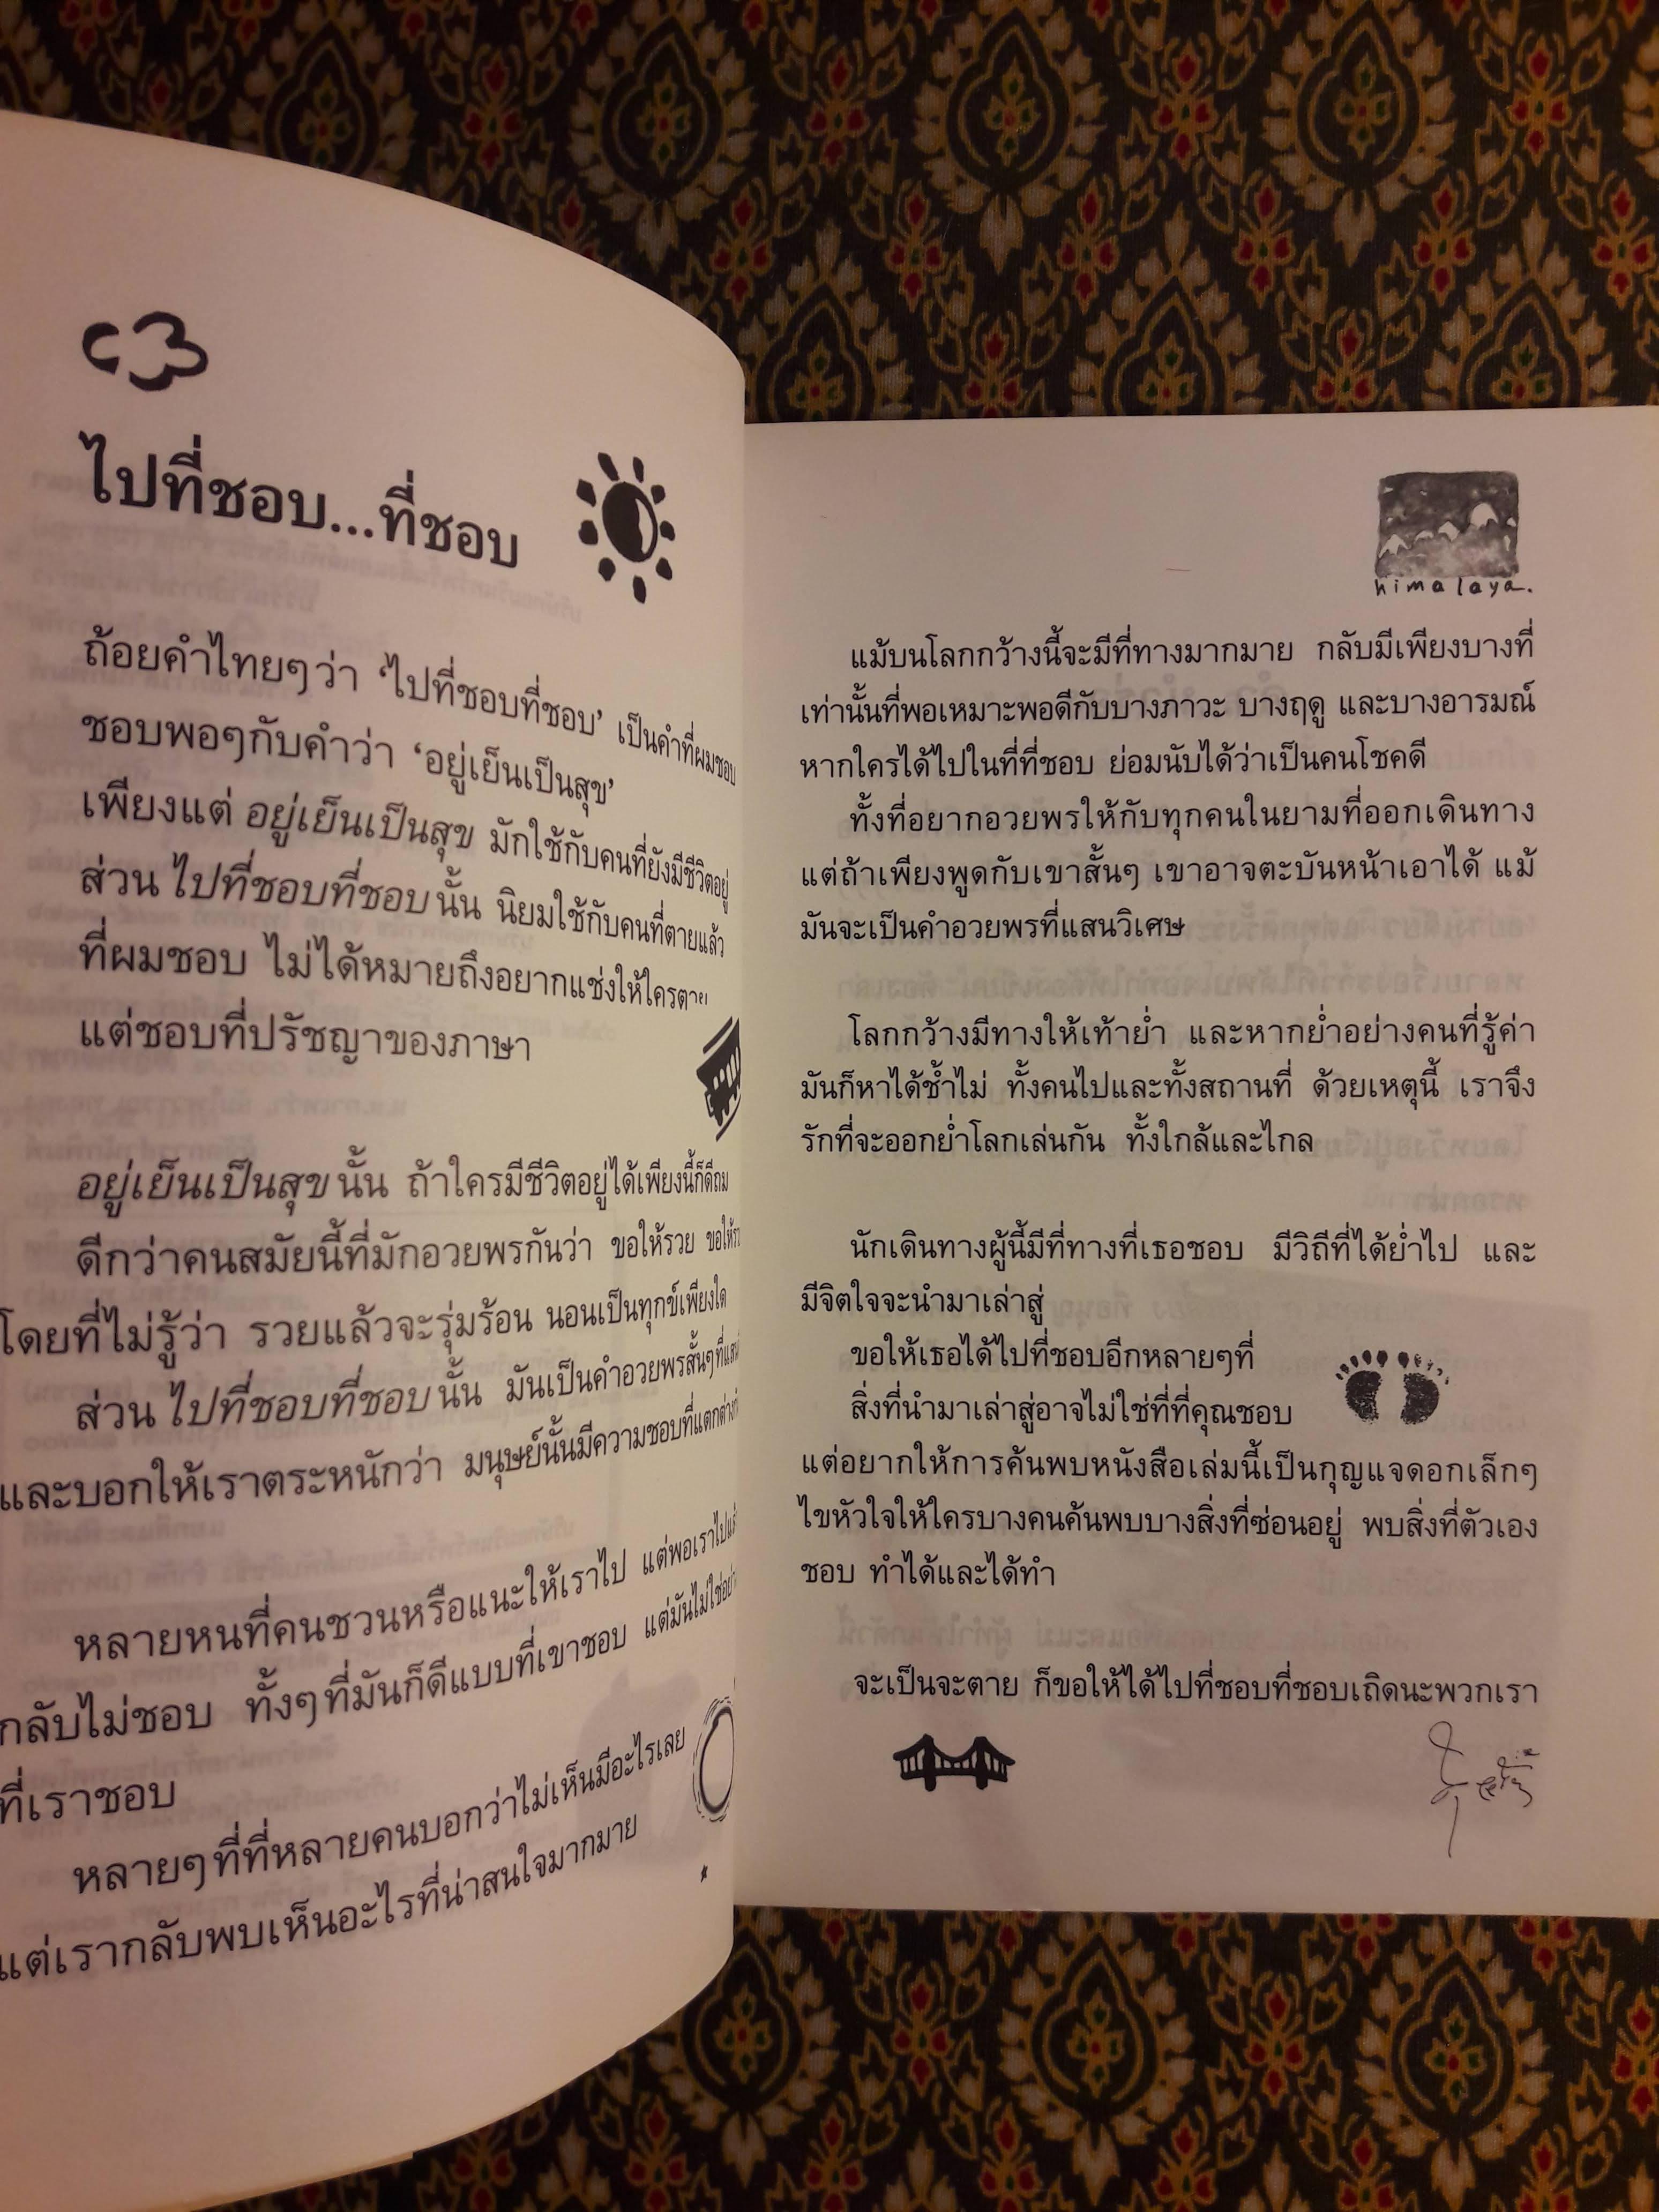 ไปที่ชอบ...ที่ชอบ
ถ้อยคำไทยๆ ว่า ‘ไปที่ชอบที่ชอบ’ เป็นคำที่ผมชอบ
ชอบพอๆกับคำว่า ‘อยู่เย็นเป็นสุข’
เพียงแต่ อยู่เย็นเป็นสุข มักใช้กับคนที่ยังมีชีวิตอยู่
ส่วน ไปที่ชอบที่ชอบ นั้น นิยมใช้กับคนที่ตายแล้ว
ที่ผมชอบ ไม่ได้หมายถึงอยากแช่งให้ใครตาย
แต่ชอบที่ปรัชญาของภาษา
อยู่เย็นเป็นสุข นั้น ถ้าใครมีชีวิตอยู่ได้เพียงนี้ก็ดีถม
ดีกว่าคนสมัยนี้ที่มักอวยพรกันว่า ขอให้รวย ขอให้
โดยที่ไม่รู้ว่า รวยแล้วจะรุ่มร้อน นอนเป็นทุกข์เพียงใด
ส่วน ไปที่ชอบที่ชอบ นั้น มันเป็นคำอวยพรสั้นๆ ที่แสน
และบอกให้เราตระหนักว่า มนุษย์นั้นมีความชอบที่แตกต่าง
หลายหนที่คนชวนหรือแนะให้เราไป แต่พอเราไปแล้
กลับไม่ชอบ ทั้งๆ ที่มันก็ดีแบบที่เขาชอบ แต่มันไม่ใช่อย่
ที่เราชอบ
หลายๆ ที่ที่หลายคนบอกว่าไม่เห็นมีอะไรเลย
แต่เรากลับพบเห็นอะไรที่น่าสนใจมากมาย
himalaya.
แม้บนโลกกว้างนี้จะมีที่ทางมากมาย กลับมีเพียงบางที่
เท่านั้นที่พอเหมาะพอดีกับบางภาวะ บางฤดู และบางอารมณ์
หากใครได้ไปในที่ที่ชอบ ย่อมนับได้ว่าเป็นคนโชคดี
ทั้งที่อยากอวยพรให้กับทุกคนในยามที่ออกเดินทาง
แต่ถ้าเพียงพูดกับเขาสั้นๆ เขาอาจตะบันหน้าเอาได้ แม้
มันจะเป็นคำอวยพรที่แสนวิเศษ
โลกกว้างมีทางให้เท้าย่ำ และหากย่ำอย่างคนที่รู้ค่า
มันก็หาได้ช้ำไม่ ทั้งคนไปและทั้งสถานที่ ด้วยเหตุนี้ เราจึง
รักที่จะออกย่ำโลกเล่นกัน ทั้งใกล้และไกล
นักเดินทางผู้นี้มีที่ทางที่เธอชอบ มีวิถีที่ได้ย่ำไป และ
มีจิตใจจะนำมาเล่าสู่
ขอให้เธอได้ไปที่ชอบอีกหลายๆที่
สิ่งที่นำมาเล่าสู่อาจไม่ใช่ที่ที่คุณชอบ
แต่อยากให้การค้นพบหนังสือเล่มนี้เป็นกุญแจดอกเล็กๆ
ไขหัวใจให้ใครบางคนค้นพบบางสิ่งที่ซ่อนอยู่ พบสิ่งที่ตัวเอง
ชอบ ทำได้และได้ทำ
จะเป็นจะตาย ก็ขอให้ได้ไปที่ชอบที่ชอบเถิดนะพวกเรา